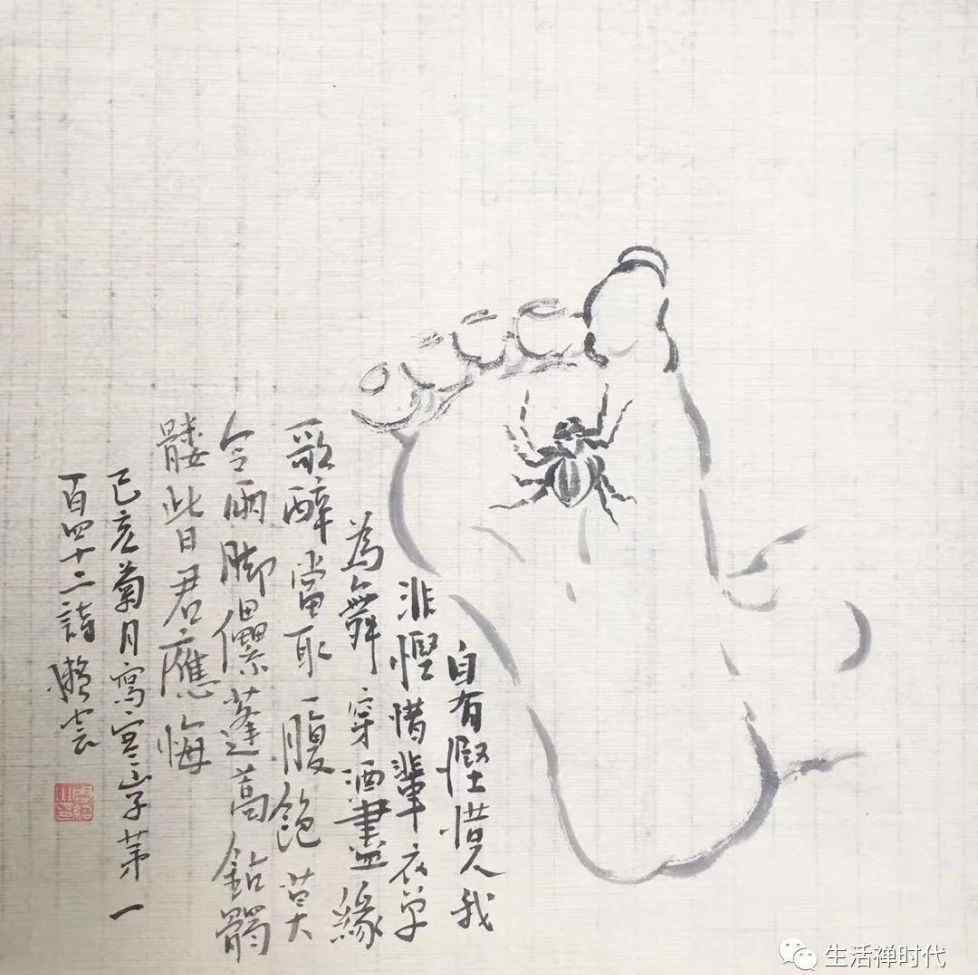 自有慳惜人我
非慳惜輩衣单
為舞穿酒盡緣
歌醉當取一腹飽莫
令兩脚儽蓬蒿鉆髑
髏此日君應悔
己亥菊月寫寒山子第一
百四十二詩
生活禅时代